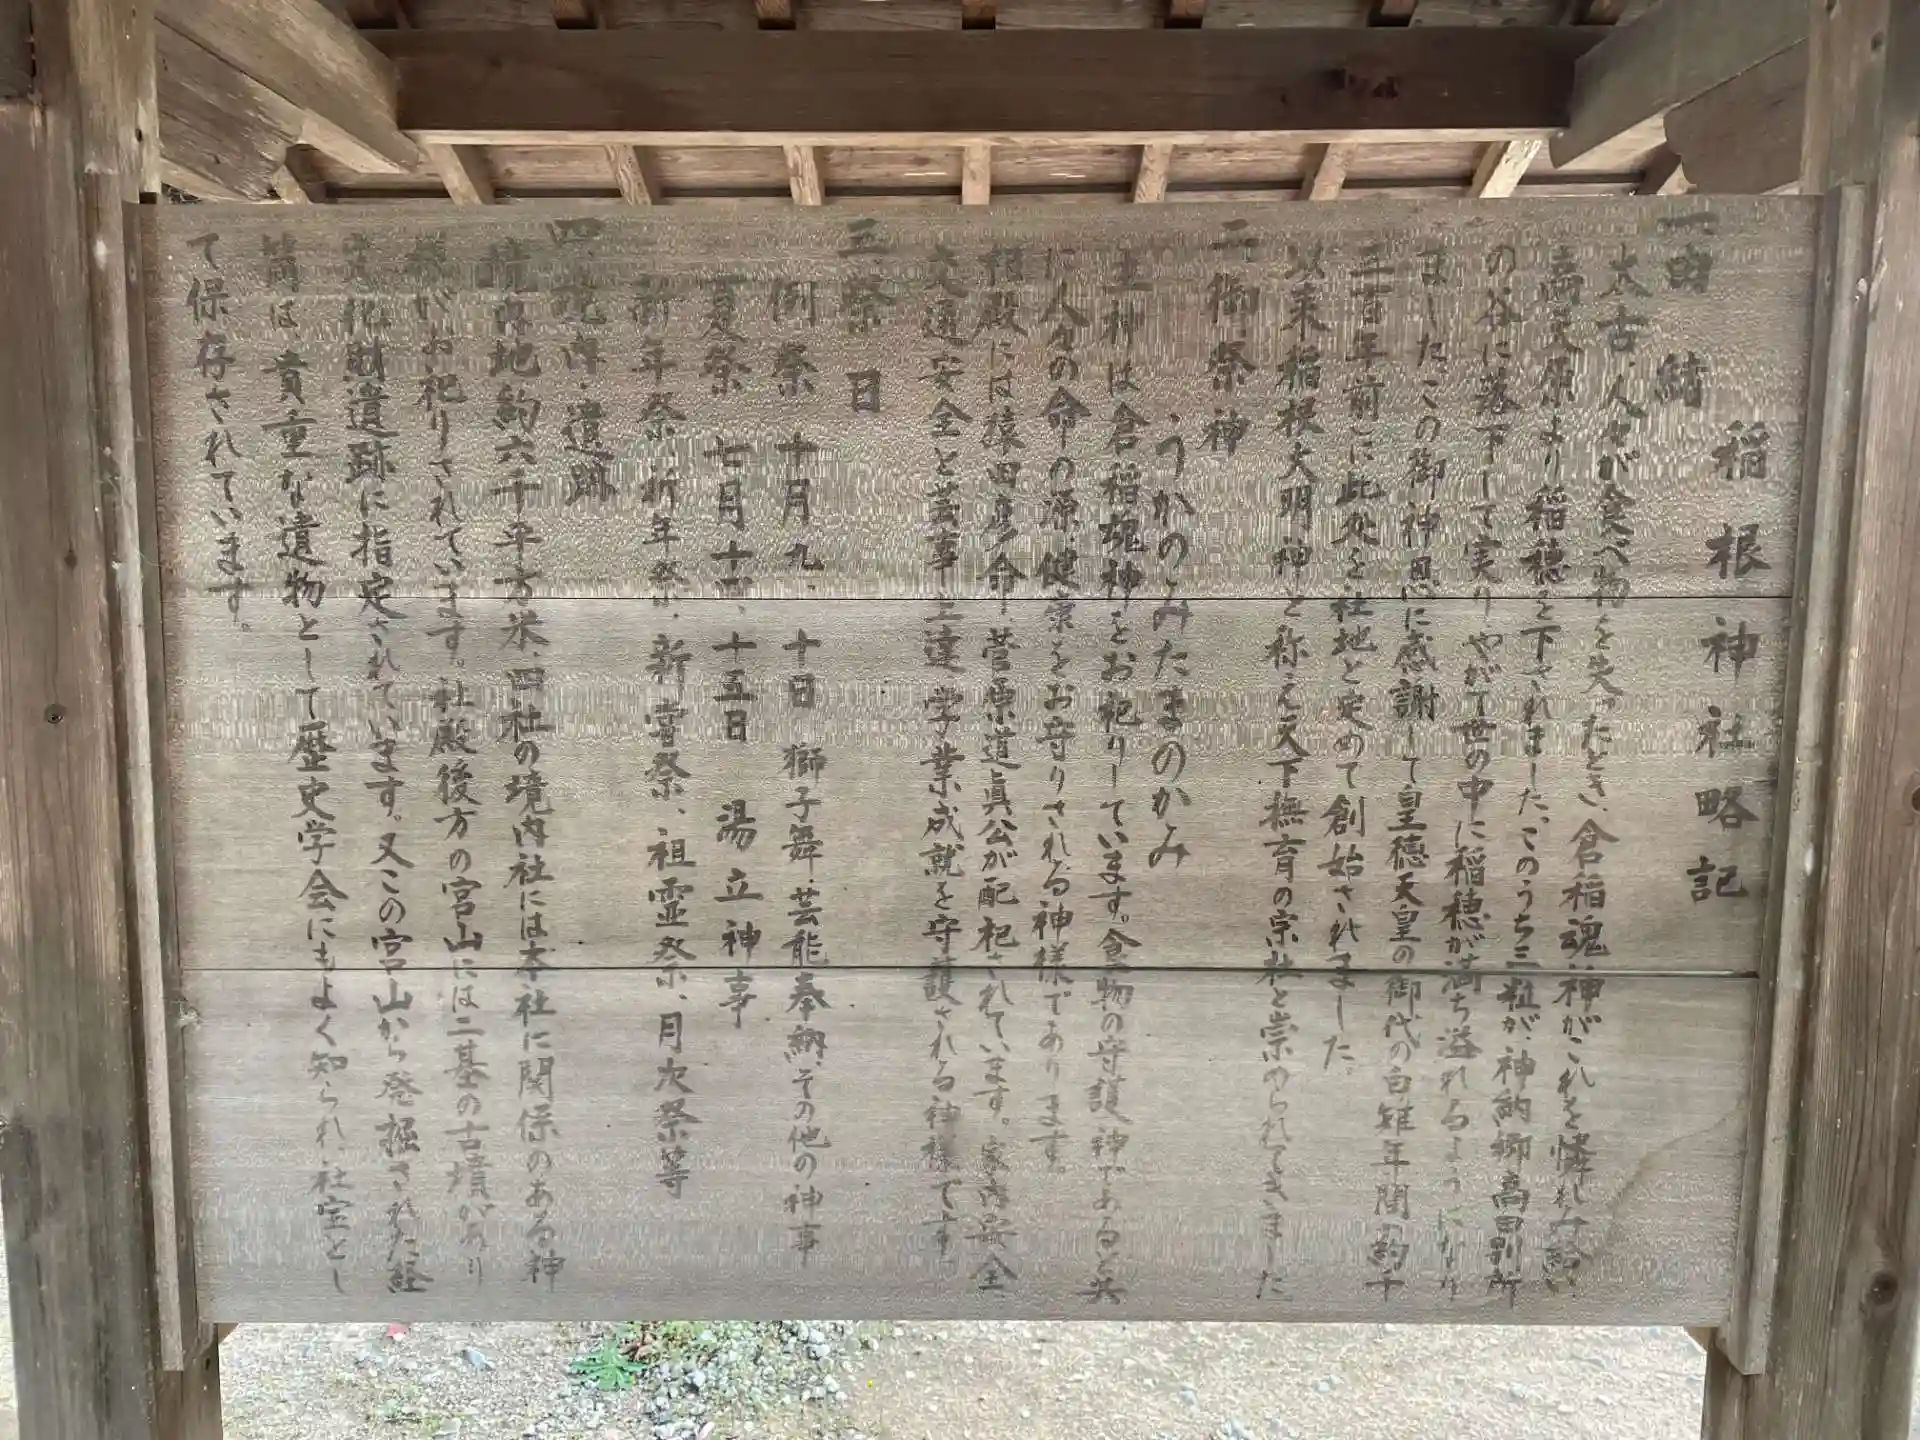 稲根神社略記
一、由緒
太古、人々が食べ物を失ったとき、倉稲魂神がこれを憐れみ給い
高天原より稲穂を下されました。このうち三粒が、神納郷高田別所
の谷に落下して実り、やがて世の中に稲穂が満ち溢れるようになり
ました。この御神恩に感謝して皇徳天皇の御代の白雉年間(約千
三百年前)に此処を社地と定めて創始されました。
以来稲根大明神と称え天下撫育の宗社と崇められてきました
二、御祭神
うかのみたまのかみ
主神は倉稲魂神をお祀りしています。食物の守護神であると共
に人々の命の源、健康をお守りされる神様であります。
相殿には猿田彦命、菅原道真公が配祀されています。家内安全
交通安全と芸事上達、学業成就を守護される神様です。
三、祭日
例祭 十月九、十日 獅子舞・芸能奉納、その他の神事
夏祭 七月十四、十五日 湯立神事
新年祭、祈年祭、新嘗祭、祖霊祭、月次祭等
四、境内・遺跡
境内地約六千平方米、四社の境内社には本社に関係のある神
々がお祀りされています。社殿後方の宮山には二基の古墳があり
文化財遺跡に指定されています。又この宮山から発掘された経
筒は貴重な遺物として歴史学会にもよく知られ、社宝とし
て保存されています。